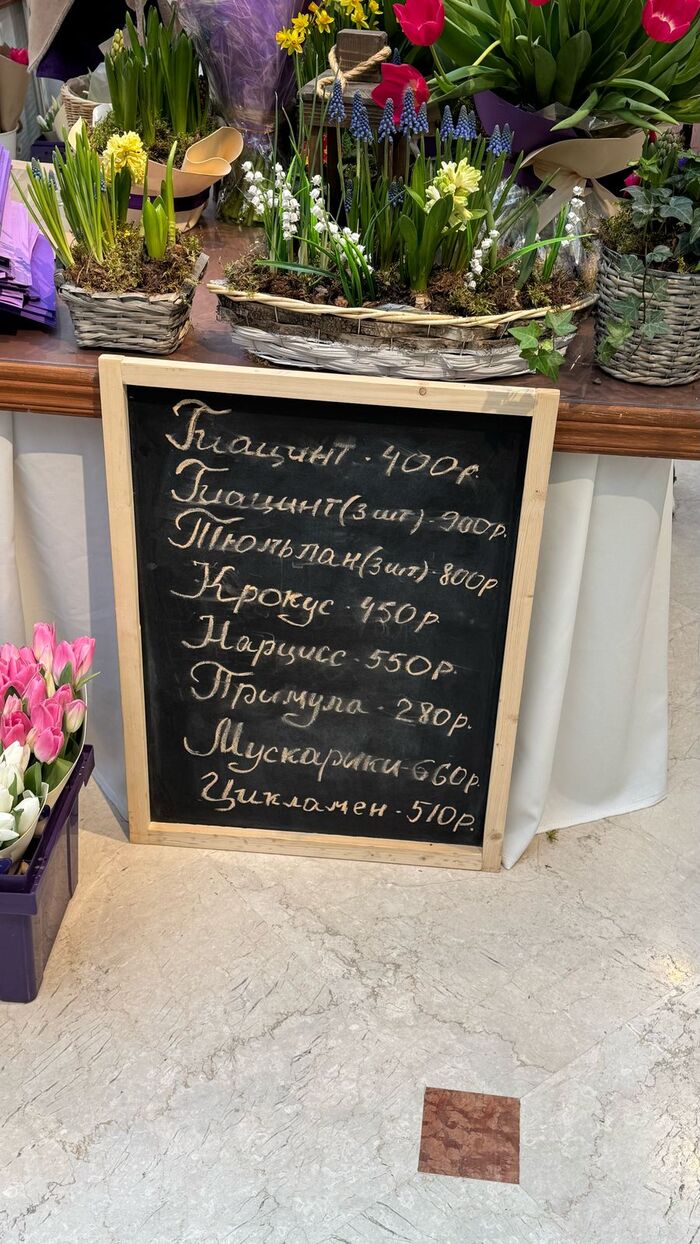 Гиацинт - 400р.
Гиацинт (3 шт) - 900р.
Тюльпан (3 шт) - 800р
Крокус - 450р.
Нарцисс - 550р.
Примула - 280р.
Мускарики - 660р.
Цикламен - 510р.